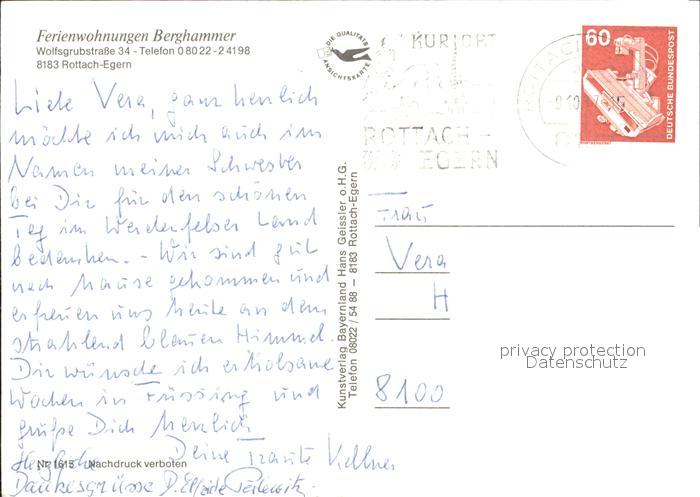 Ferienwohnungen Berghammer
Wolfsgrubstraße 34 - Telefon 08022-24198
8183 Rottach-Egern
Liebe Vera, ganz herzlich
möchte ich mich auch im
Namen meiner Schwester
bei Dir für den schönen
Tag im Werdenfelser Land
bedanken. - Wir sind gut
nach Hause gekommen und
erfreuen uns heute an dem
strahlend blauen Himmel.
Dir wünsche ich erholsame
Wochen in Füssing und
grüße Dich herzlich
Deine Traute Kellner
Herzliche
Dankesgrüsse D.
Nr. 1615 Nachdruck verboten
Kunstverlag Bayernland Hans Geissler o.H.G.
Telefon 08022 / 54 88 – 8183 Rottach-Egern
DIE QUALITÄTS
ANSICHTSKARTE
KURORT
ROTTACH-
EGERN
ROTTACH
60
DEUTSCHE BUNDESPOST
Frau
Vera
H
8100
privacy protection
Datenschutz